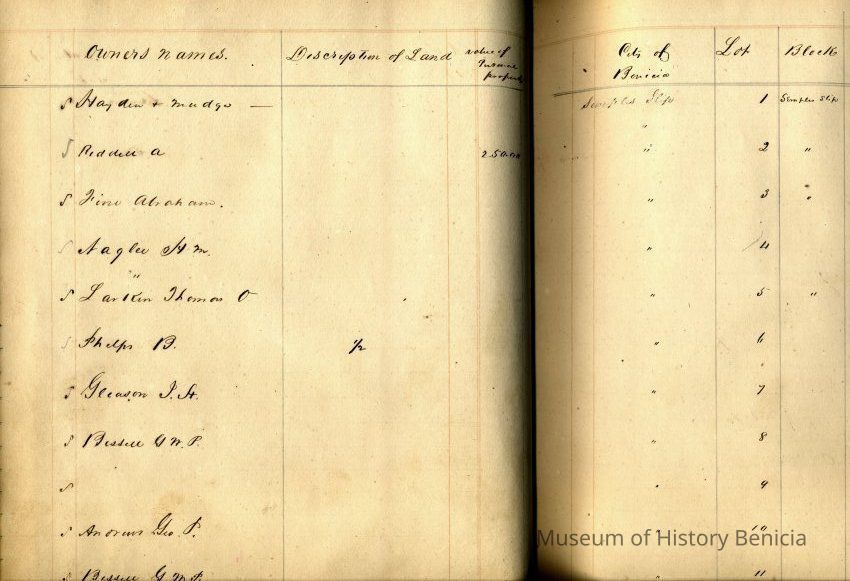 Owners names. Description of Land value of Personal property City of Benicia Lot Block
S Hayden & Mudge — Semples Slip 1 Semples Slip
"
S Riddell A 25000 " 2 "
S Fine Abraham. " 3 "
S Naglee H M. " 4
"
S Larkin Thomas O " 5 "
S Phelps B. 1/2 " 6
S Gleason J. H. " 7
S Bissell G W. P. " 8
S " 9
S Andrews Geo. P. 10
S Bissell G W P. " 11
Museum of History Benicia